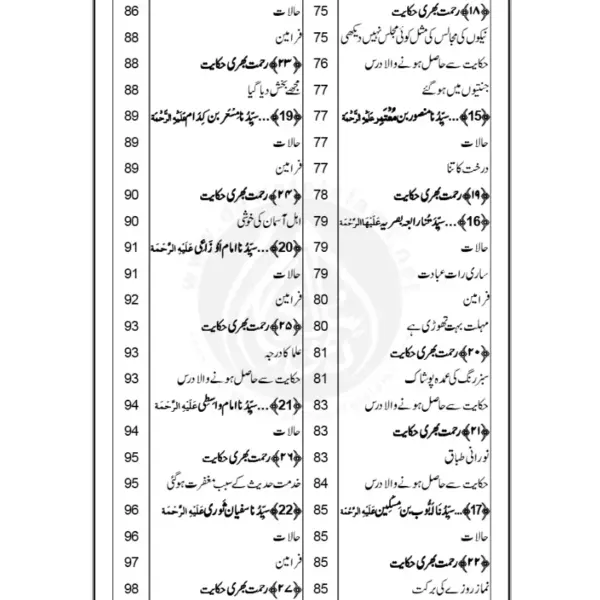 ﴿۱۸﴾ رحمت بھری حکایت 75
نیکوں کی مجالس کی مثل کوئی مجلس نہیں دیکھی 75
حکایت سے حاصل ہونے والا درس 76
جنتیوں میں ہوگئے 77
﴿15﴾... سیِّدُنا منصور بن مُعْتَمِر عَلَیْہِ الرَّحْمَۃ 77
حالات 77
درخت کا تنا 77
﴿۱۹﴾ رحمت بھری حکایت 78
﴿16﴾... سیِّدَتُنا رابعہ بصریہ عَلَیْہَا الرَّحْمَۃ 79
حالات 79
ساری رات عبادت 79
فرامین 80
مہلت بہت تھوڑی ہے 80
﴿۲۰﴾ رحمت بھری حکایت 81
سبز رنگ کی عمدہ پوشاک 81
حکایت سے حاصل ہونے والا درس 83
﴿۲۱﴾ رحمت بھری حکایت 83
نورانی طباق 83
حکایت سے حاصل ہونے والا درس 84
﴿17﴾... سیِّدُنا ایُّوب بن مِسْکِین عَلَیْہِ الرَّحْمَۃ 85
حالات 85
﴿۲۲﴾ رحمت بھری حکایت 85
نماز روزے کی برکت 85
حالات 86
فرامین 88
﴿۲۳﴾ رحمت بھری حکایت 88
مجھے بخش دیا گیا 88
﴿19﴾... سیِّدُنا مِسْعَر بن کِدَام عَلَیْہِ الرَّحْمَۃ 89
حالات 89
فرامین 89
﴿۲۴﴾ رحمت بھری حکایت 90
اہل آسمان کی خوشی 90
﴿20﴾... سیِّدُنا امام اَوزَاعِی عَلَیْہِ الرَّحْمَۃ 91
حالات 91
فرامین 92
﴿۲۵﴾ رحمت بھری حکایت 93
علما کا درجہ 93
حکایت سے حاصل ہونے والا درس 93
﴿21﴾... سیِّدُنا امام واسطی عَلَیْہِ الرَّحْمَۃ 94
حالات 94
﴿۲۶﴾ رحمت بھری حکایت 95
خدمت حدیث کے سبب مغفرت ہوگئی 95
﴿22﴾... سیِّدُنا سفیان ثوری عَلَیْہِ الرَّحْمَۃ 96
حالات 96
فرامین 97
﴿۲۷﴾ رحمت بھری حکایت 98